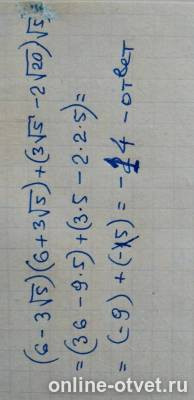 (6 - 3√5)(6 + 3√5) + (3√5 - 2√20)√5
= (36 - 9·5) + (3·5 - 2·2·5) =
= (-9) + (-5) = -14 - ответ
online-otvet.ru